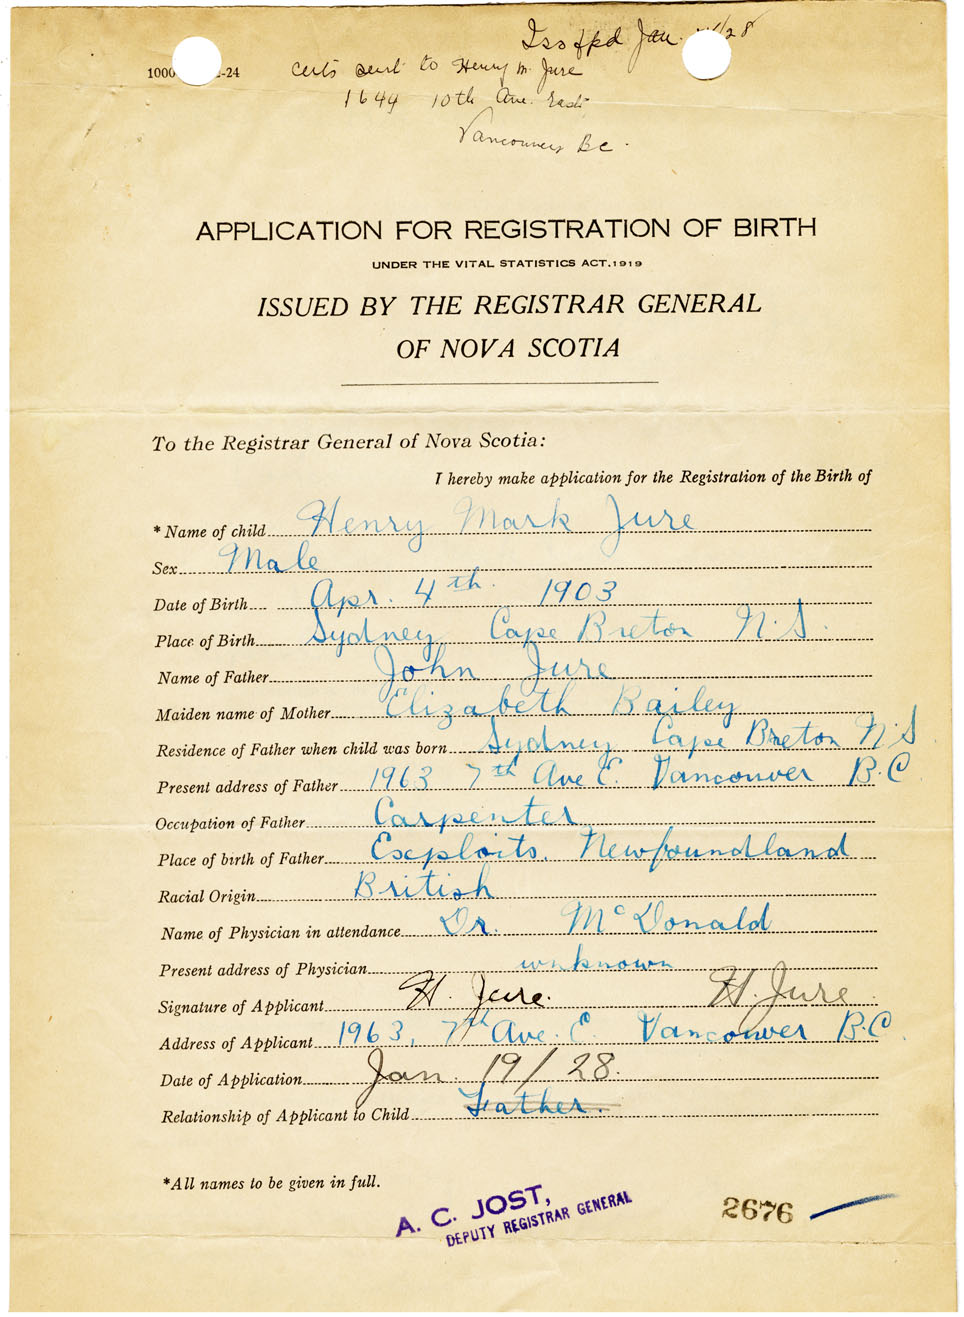 Jan. /28
1000 -24
certs sent to Henry M. Jure
1644 10th Ave. East
Vancouver BC.
APPLICATION FOR REGISTRATION OF BIRTH
UNDER THE VITAL STATISTICS ACT, 1919
ISSUED BY THE REGISTRAR GENERAL
OF NOVA SCOTIA
To the Registrar General of Nova Scotia:
I hereby make application for the Registration of the Birth of
* Name of child Henry Mark Jure
Sex Male
Date of Birth Apr. 4th. 1903
Place of Birth Sydney Cape Breton N.S.
Name of Father John Jure
Maiden name of Mother Elizabeth Bailey
Residence of Father when child was born Sydney Cape Breton N.S
Present address of Father 1963 7th Ave E. Vancouver B.C
Occupation of Father Carpenter
Place of birth of Father Exploits. Newfoundland
Racial Origin British
Name of Physician in attendance Dr. McDonald
Present address of Physician unknown
Signature of Applicant H. Jure. H. Jure
Address of Applicant 1963, 7th Ave. E. Vancouver B.C.
Date of Application Jan. 19/28.
Relationship of Applicant to Child Father.
*All names to be given in full.
A. C. JOST,
DEPUTY REGISTRAR GENERAL
2676